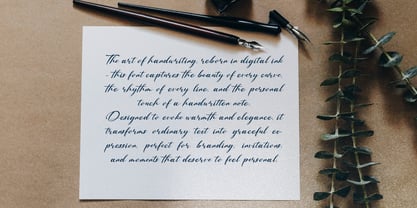 The art of handwriting, reborn in digital ink
- this font captures the beauty of every curve,
the rhythm of every line, and the personal
touch of a handwritten note.
Designed to evoke warmth and elegance, it
transforms ordinary text into graceful ex-
pression, perfect for branding, invitations,
and moments that deserve to feel personal.